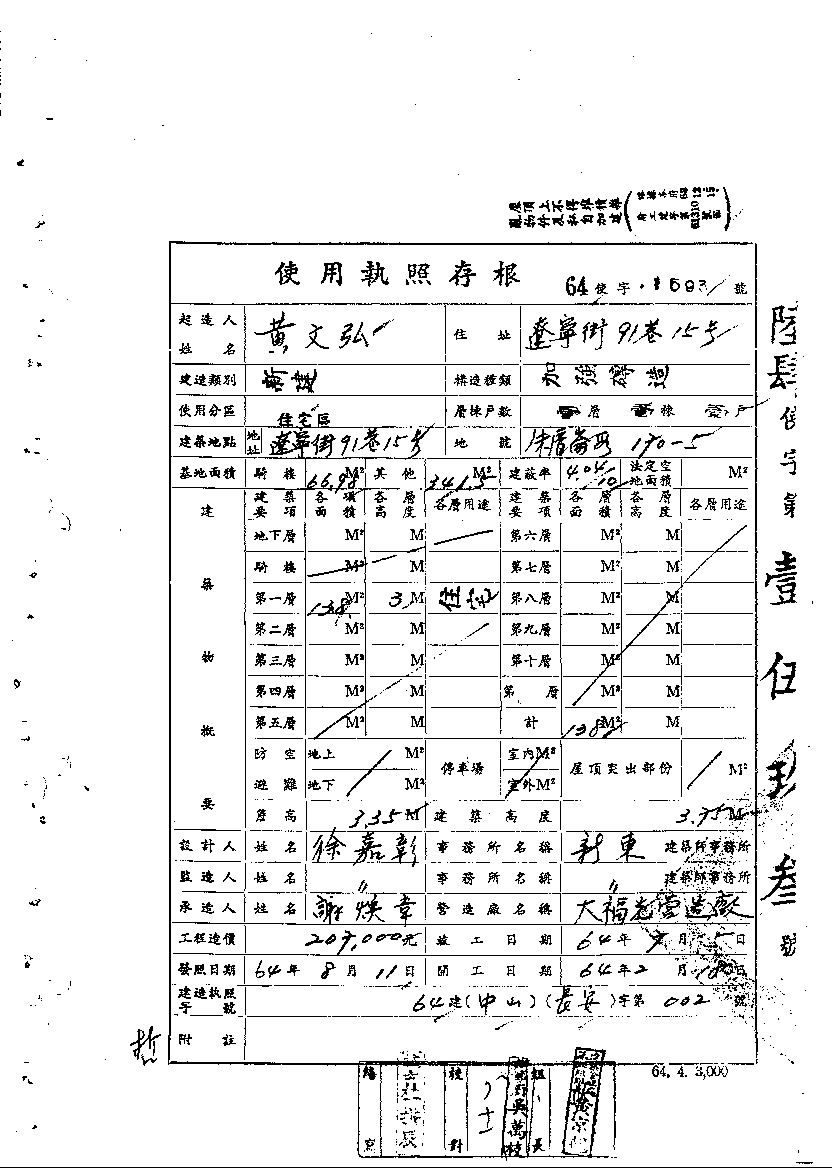 屋頂上不得堆積雜
亂物件及私自加建
使用執照存根
64使字 1593 號
起造人姓名 黃文弘 住址 遼寧街91巷15号
建造類別 新建 構造種類 加強磚造
使用分區 住宅區 層棟戶數 壹層 壹棟 壹戶
建築地點 地址 遼寧街91巷15号 地號 朱厝崙段 170-5
基地面積 騎樓 66.98 M² 其他 341.5 M² 建蔽率 4.04/10 法定空地面積 M²
建築物概要 建築要項 各項面積 各層高度 各層用途 建築要項 各層面積 各層高度 各層用途
地下層 M² M 第六層 M² M
騎樓 M² M 第七層 M² M
第一層 138 M² 3 M 住宅 第八層 M² M
第二層 M² M 第九層 M² M
第三層 M² M 第十層 M² M
第四層 M² M 第 層 M² M
第五層 M² M 計 138 M² M
防空避難 地上 M² 停車場 室內 M² 屋頂突出部份 M²
地下 M² 室外 M²
簷高 3.35 M 建築高度 3.75 M
設計人 姓名 徐嘉彰 事務所名稱 新東 建築師事務所
監造人 姓名 〃 事務所名稱 〃 建築師事務所
承造人 姓名 謝煥章 營造廠名稱 大福營造廠
工程造價 207,000元 竣工日期 64年 月 5日
發照日期 64年8月11日 開工日期 64年2月18日
建造執照字號 64建(中山)(長安)字第 002 號
附註
64. 4. 3,000
繕寫 校對 組長
吳萬枝
陸肆使字第壹伍玖叁號